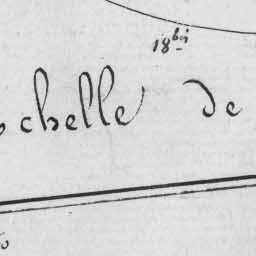 18bis
chelle de